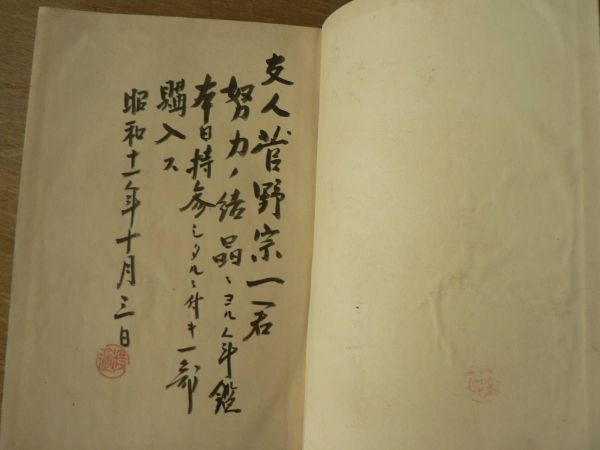 友人菅野宗一君
努力ノ結晶ニヨル年鑑
本日持参シタルニ付キ一部
購入ス
昭和十一年十月三日